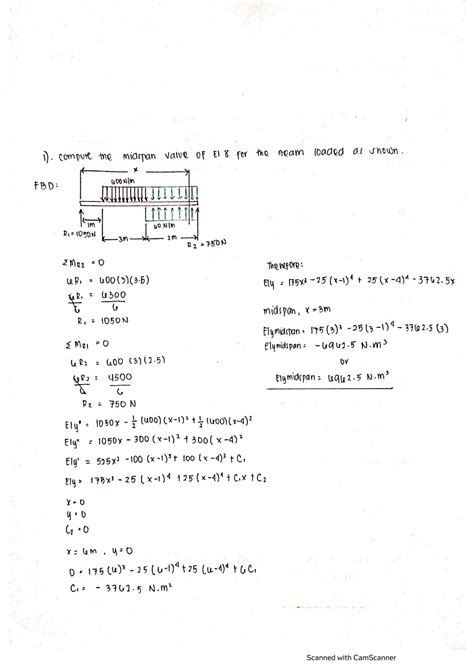 1). compute the midspan value of EI δ for the beam loaded as shown.
FBD:
x
600 N/m
1m
R1 = 1050N
3m
2m
60 N/m
R2 = 750N
Σ MR2 = 0
6R1 = 600(3)(3.5)
6R1 = 6300
6 6
R1 = 1050N
Σ MR1 = 0
6R2 = 600 (3)(2.5)
6R2 = 4500
6 6
R2 = 750 N
EIy" = 1050x - 1/2 (600)(x-1)² + 1/2 (600)(x-4)²
EIy" = 1050x - 300 (x-1)² + 300 (x-4)²
EIy' = 525x² - 100 (x-1)³ + 100 (x-4)³ + C1
EIy = 175x³ - 25 (x-1)⁴ + 25 (x-4)⁴ + C1x + C2
x = 0
y = 0
C2 = 0
x = 6m, y = 0
0 = 175 (6)³ - 25 (6-1)⁴ + 25 (6-4)⁴ + 6C1
C1 = - 3762.5 N.m²
Therefore:
EIy = 175x³ - 25 (x-1)⁴ + 25 (x-4)⁴ - 3762.5x
midspan, x = 3m
EIymidspan = 175 (3)³ - 25 (3-1)⁴ - 3762.5 (3)
EIymidspan = -6962.5 N.m³
or
EIymidspan = 6962.5 N.m³
Scanned with CamScanner